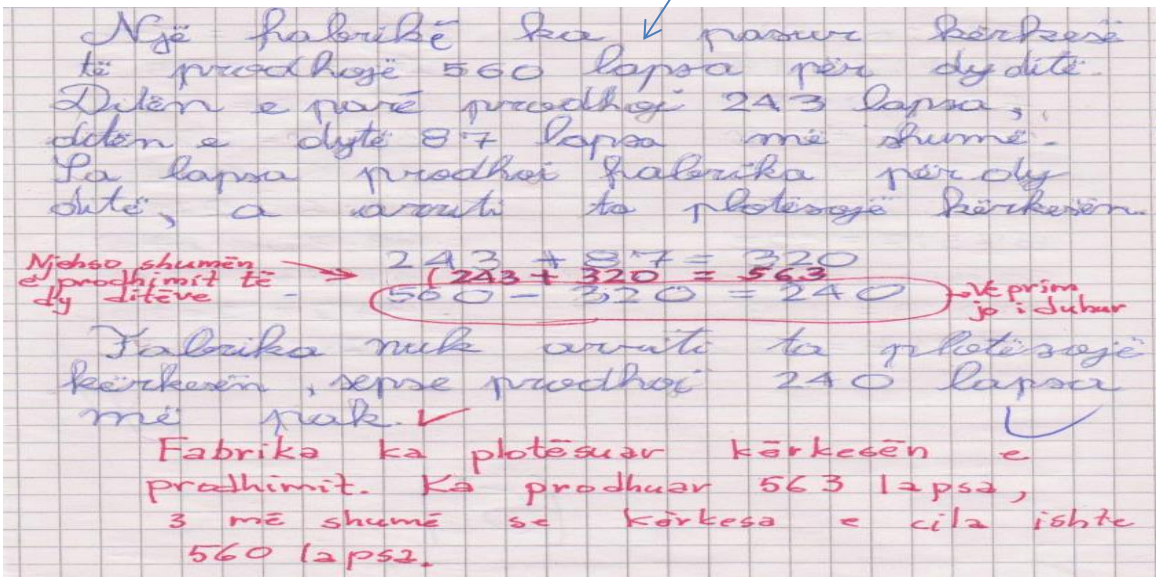 Një fabrikë ka pasur kërkesë
të prodhojë 560 lapsa për dy ditë.
Ditën e parë prodhoi 243 lapsa,
ditën e dytë 87 lapsa më shumë.
Sa lapsa prodhoi fabrika për dy
ditë, a arriti ta plotësojë kërkesën.
243 + 87 = 320
Njehso shumën
e prodhimit të
dy ditëve
(243 + 320 = 563
560 - 320 = 240
Veprim
jo i duhur
Fabrika nuk arriti ta plotësojë
kërkesën, sepse prodhoi 240 lapsa
më pak.
Fabrika ka plotësuar kërkesën e
prodhimit. Ka prodhuar 563 lapsa,
3 më shumë se kërkesa e cila ishte
560 lapsa.